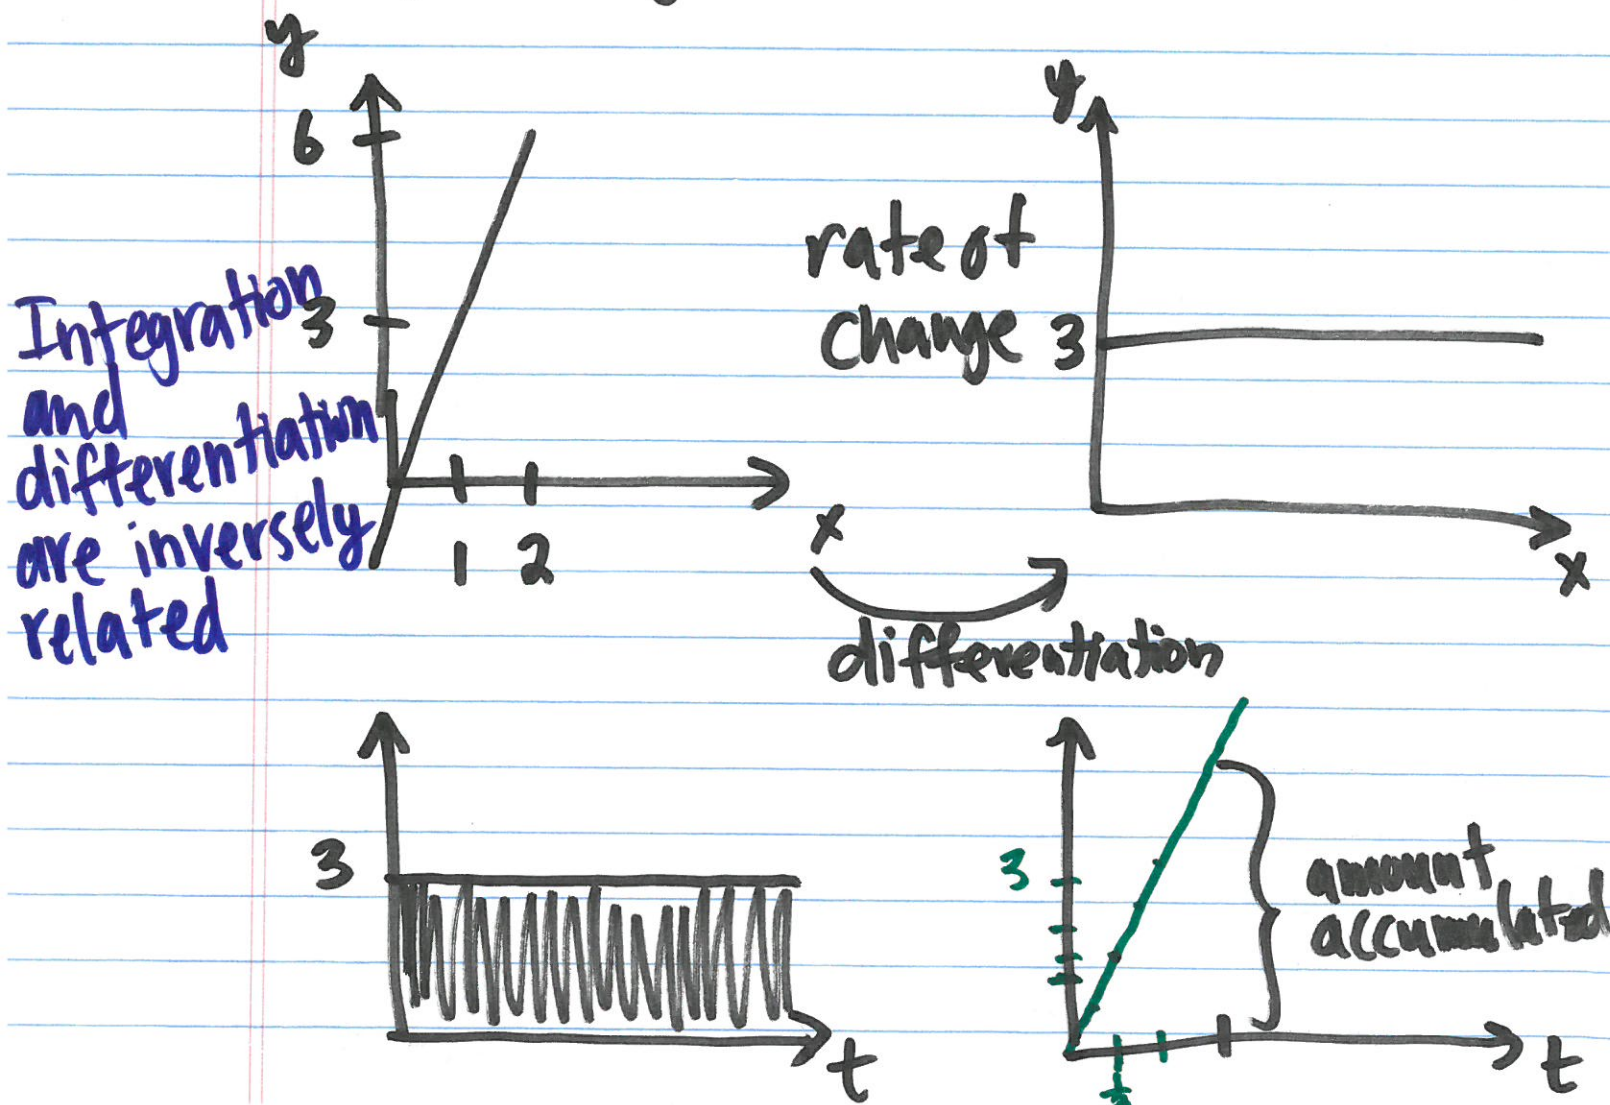 y
6
3
1 2
x
Integration
and
differentiation
are inversely
related
y
rate of
change 3
x
differentiation
3
t
3
amount
accumulated
t